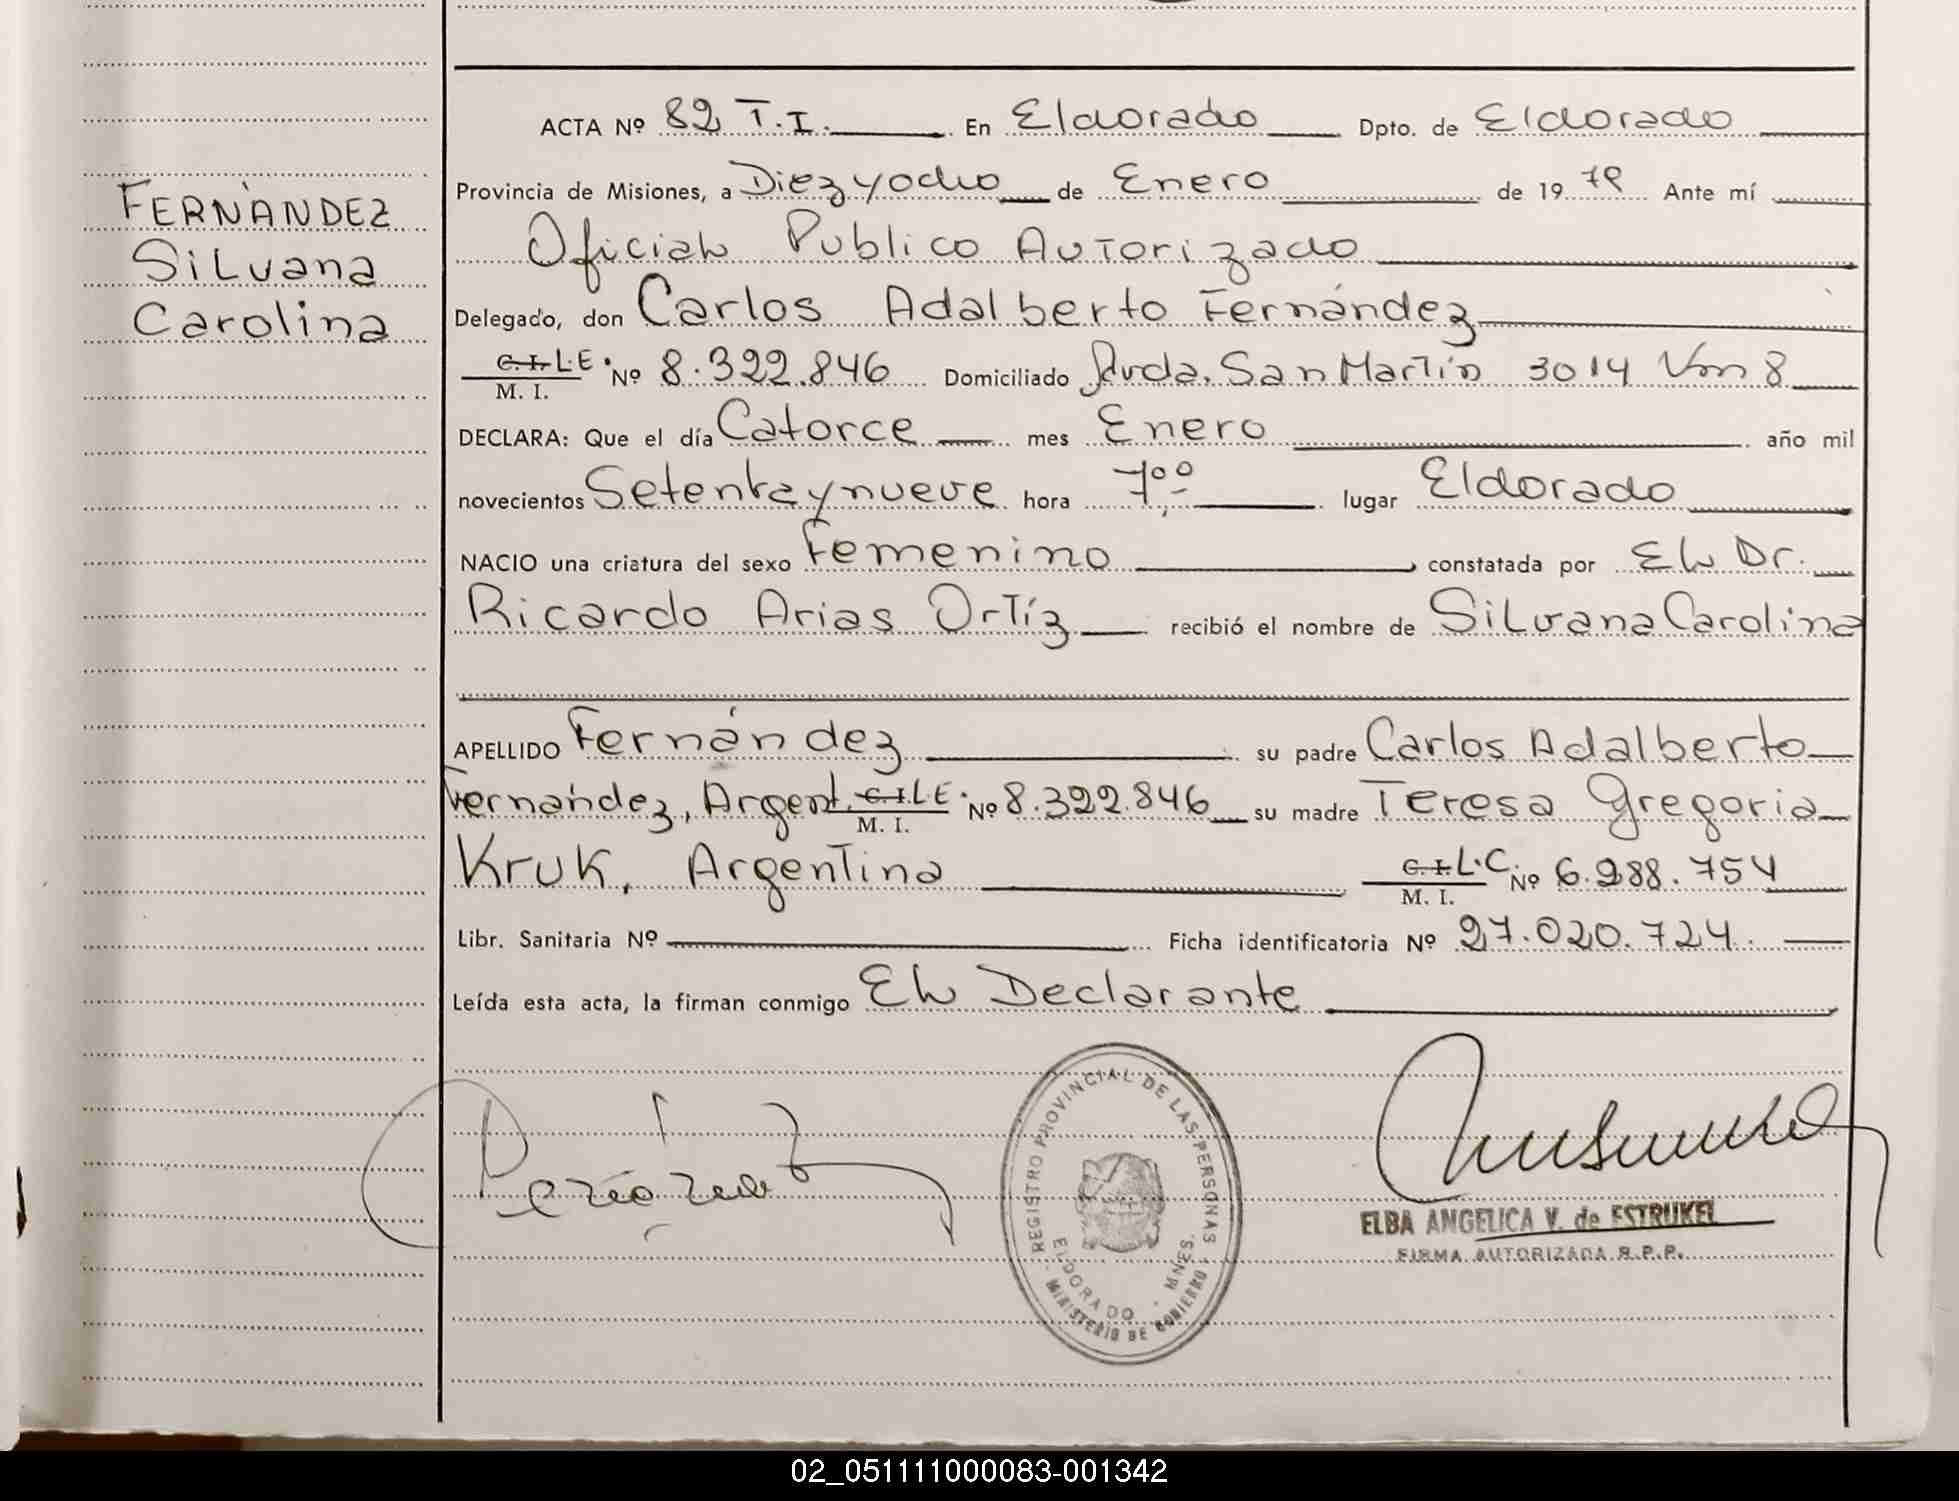 ACTA Nº 82 T.I. En Eldorado Dpto. de Eldorado
Provincia de Misiones, a Diez y ocho de Enero de 19 79 Ante mí
FERNÁNDEZ
Oficial Publico Autorizado
SiLvana
Delegado, don Carlos Adalberto Fernández
Carolina
C.I. L.E. M. I. Nº 8.322.846 Domiciliado Avda. San Martín 3014 Km 8
DECLARA: Que el día Catorce mes Enero año mil
novecientos Setenta y nueve hora 7,00 lugar Eldorado
NACIO una criatura del sexo Femenino constatada por El Dr.
Ricardo Arias Ortíz recibió el nombre de SiLvana Carolina
APELLIDO Fernández su padre Carlos Adalberto
Fernández, Argent. C.I. L.E. M. I. Nº 8.322.846 su madre Teresa Gregoria
Kruk, Argentina C.I. L.C. M. I. Nº 6.288.754
Libr. Sanitaria Nº Ficha identificatoria Nº 27.020.724.
Leída esta acta, la firman conmigo El Declarante
REGISTRO PROVINCIAL DE LAS PERSONAS
ELDORADO - MNES.
MINISTERIO DE GOBIERNO
ELBA ANGELICA V. de ESTRUKEL
FIRMA AUTORIZADA R.P.P.
02_051111000083-001342